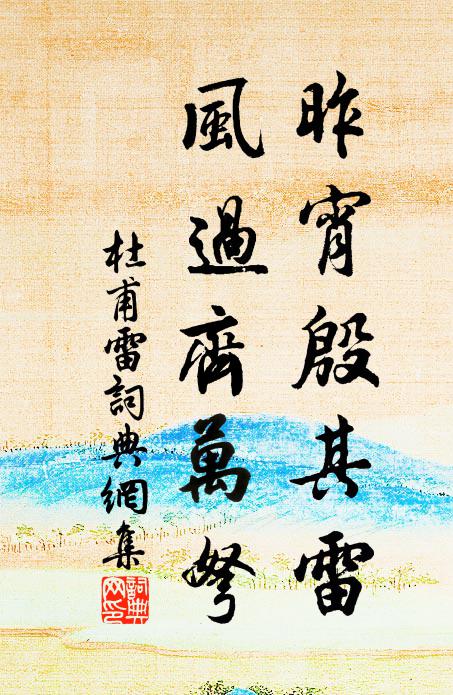 昨宵殷其雷
風過齊萬弩
杜甫雷詞典網集
詞典